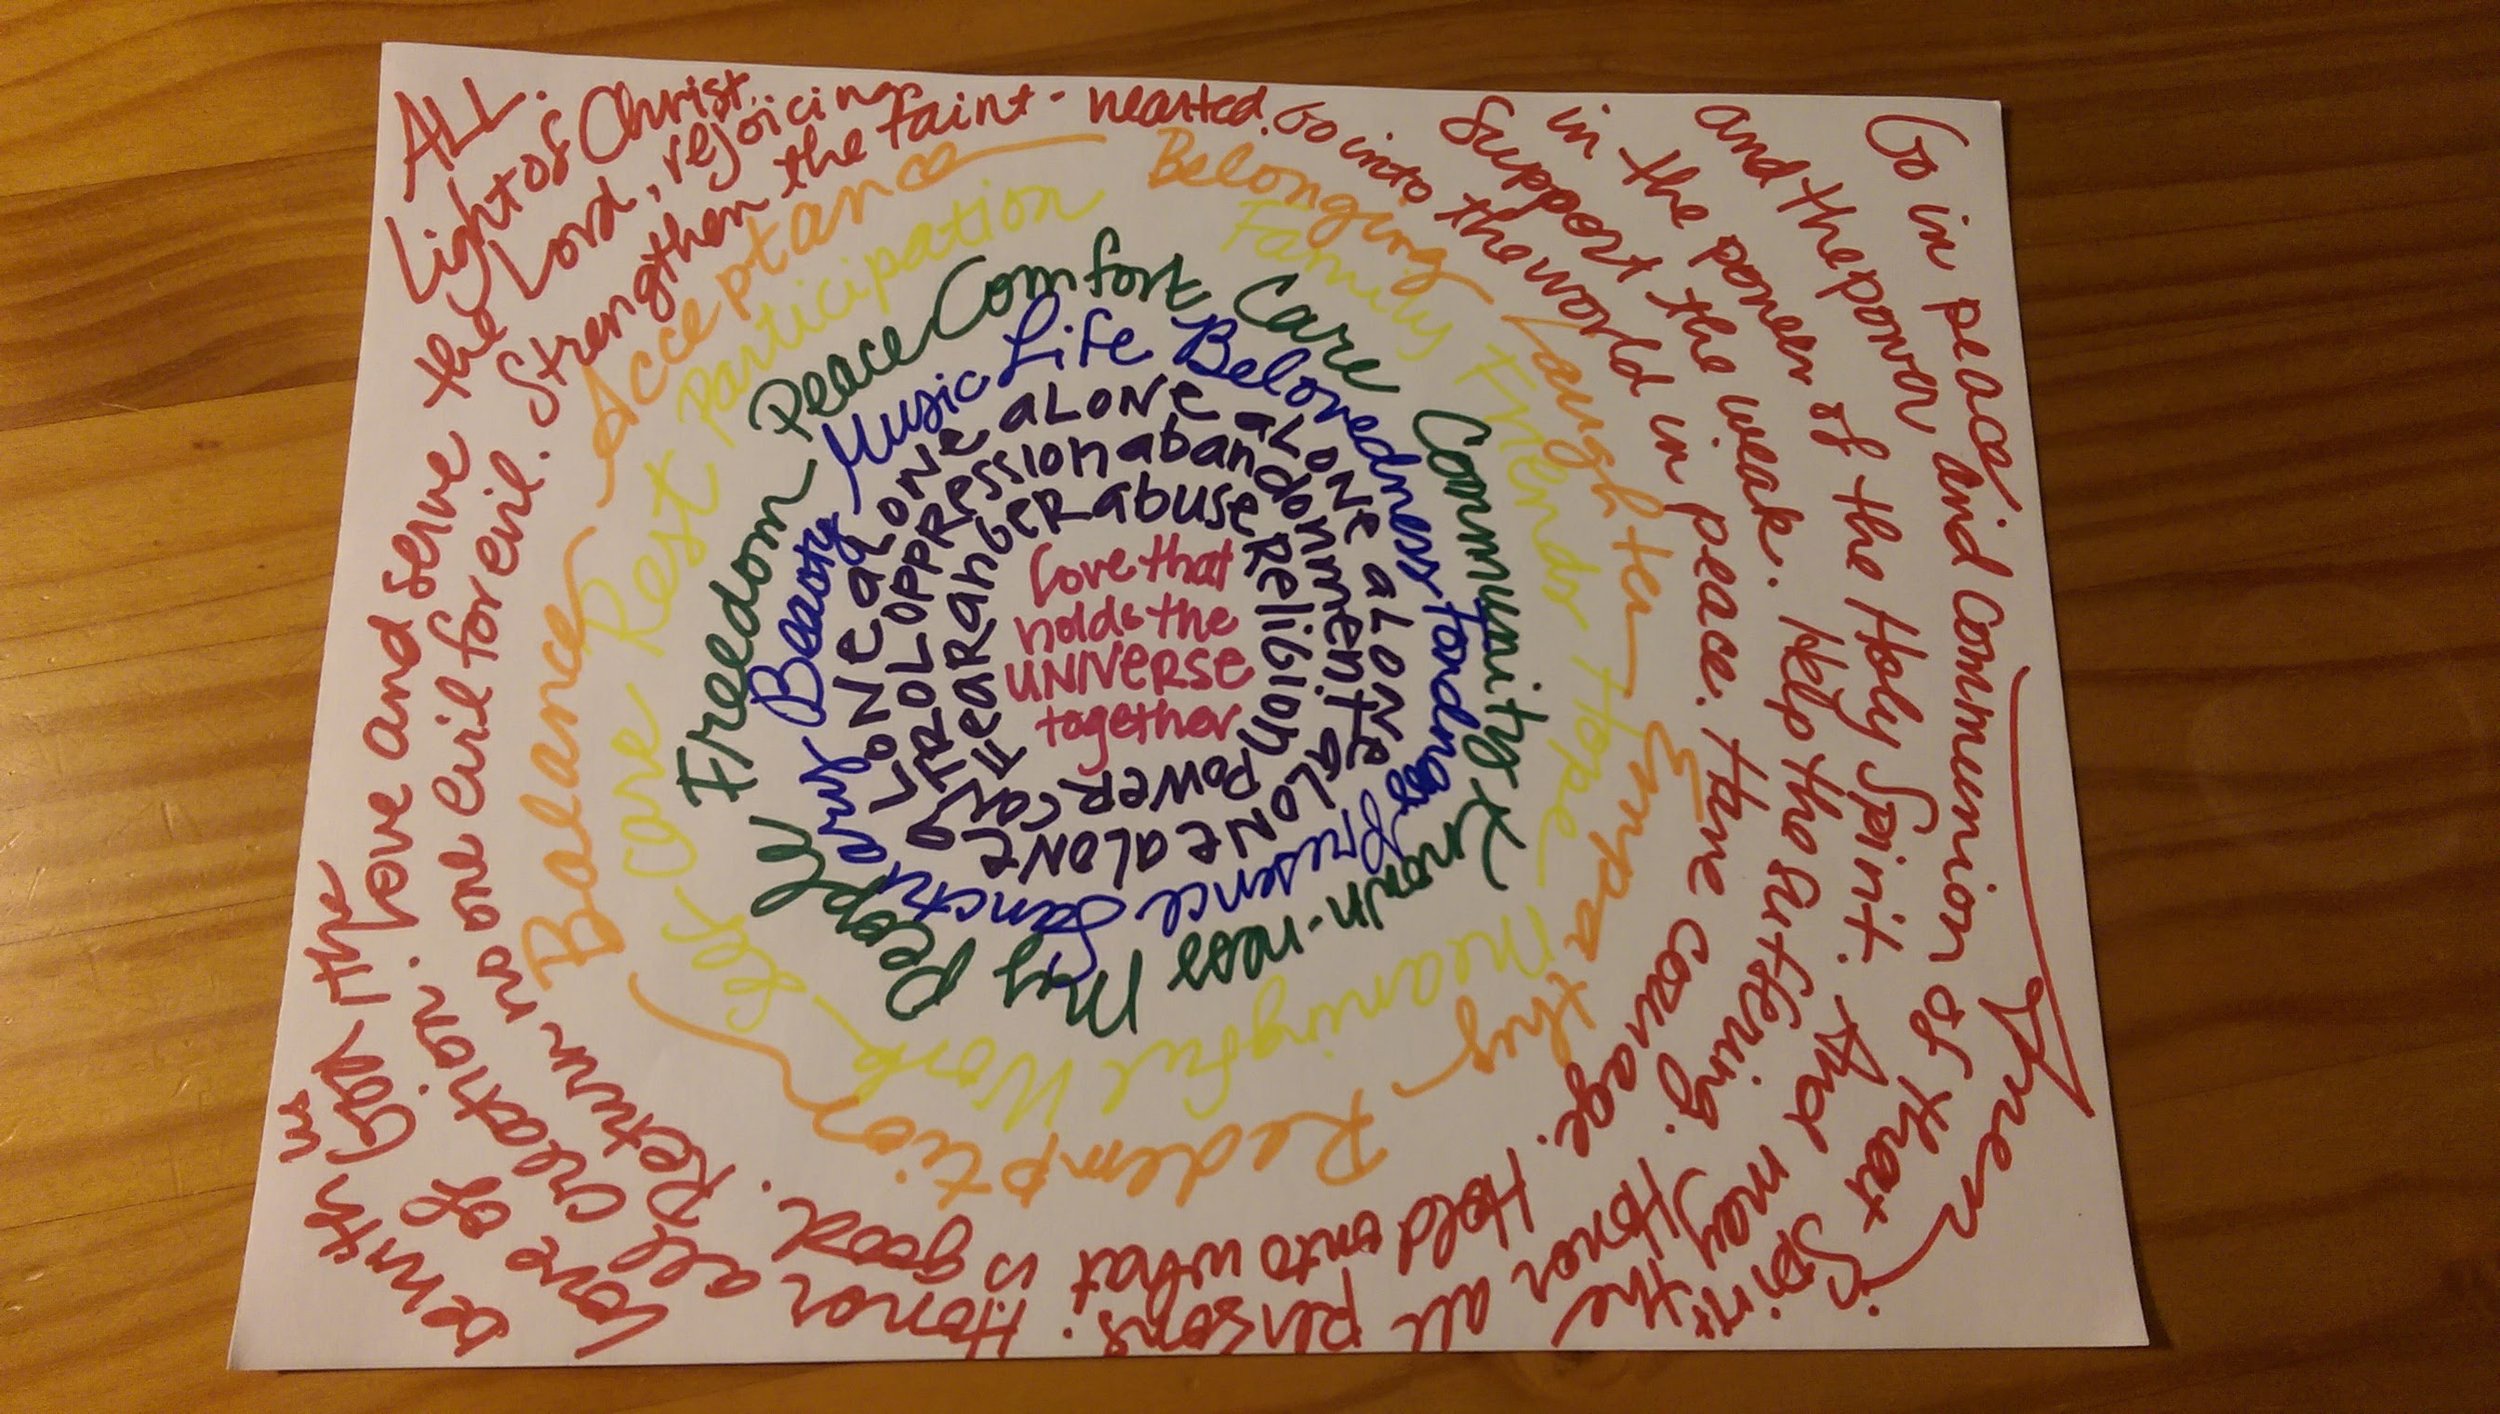 love that
holds the
UNIVERSE
together
FeaR anGeR abuse ReliGion POWeR
coNTROL OPPRession abandonment
aLONE aLONE aLONE aLONE aLONE aLONE aLONE
Music Life Belovedness presence Sanctuary Beauty
Peace Comfort Care Community Known-ness My People Freedom
Participation Family Friends Hope Meaningful Work Self Care Rest
Acceptance Belonging Laughter Empathy Redemption Balance
Go into the world in peace. Have courage. Hold onto what is good. Return no one evil for evil. Strengthen the faint-hearted.
Support the weak. Help the suffering. Honor all persons. Honor all creation. Love and serve the Lord, rejoicing
in the power of the Holy Spirit. And may the love of God, the Light of Christ
and the power and Communion of that Spirit be with us ALL.
Go in peace